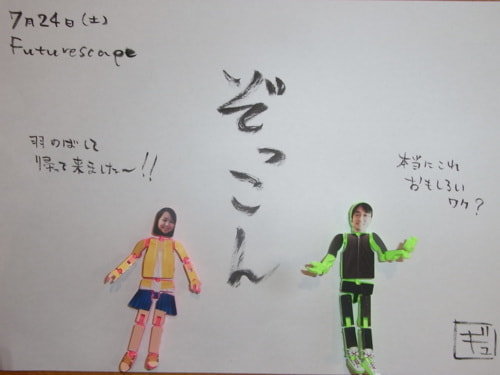 7月24日(土)
Futurescape
ぞっこん
羽のばして
帰って来ました〜!!
本当にこれ
おもしろい
ワケ?
ギュ